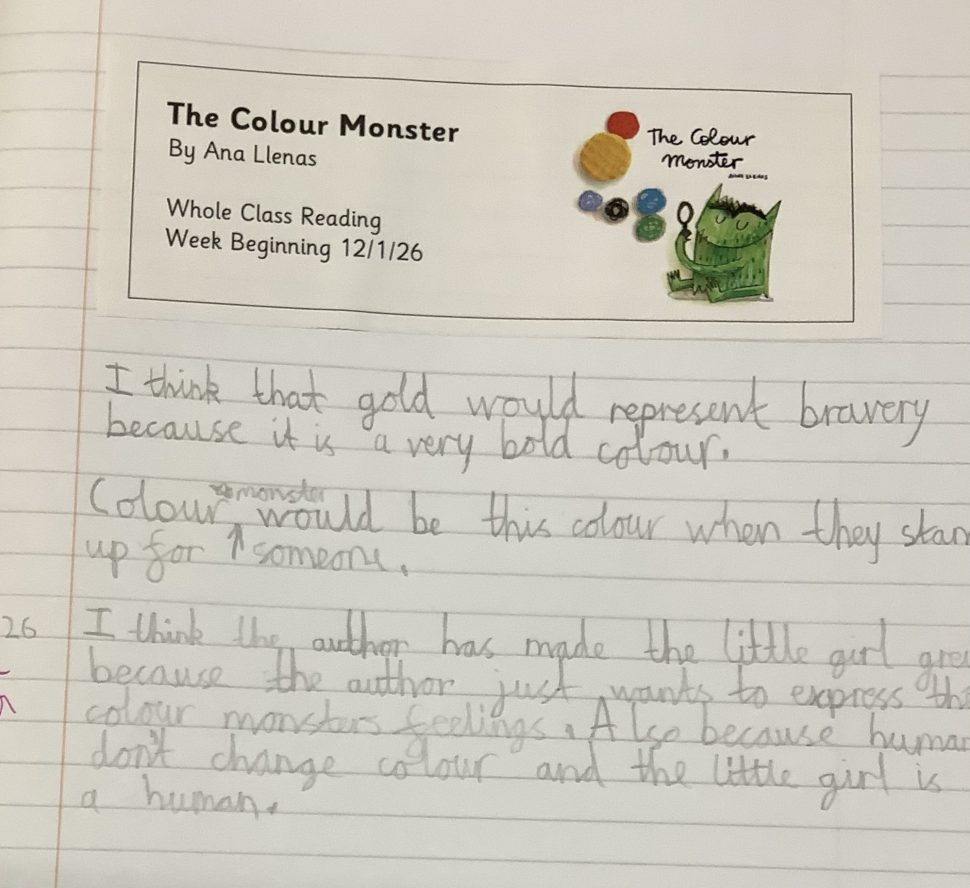 The Colour Monster
By Ana Llenas
Whole Class Reading
Week Beginning 12/1/26
The Colour
monster
I think that gold would represent bravery
because it is a very bold colour.
Colour monster would be this colour when they stan
up for someone.
26
I think the author has made the little girl grey
because the author just wants to express the
colour monsters feelings. Also because human
don't change colour and the little girl is
a human.